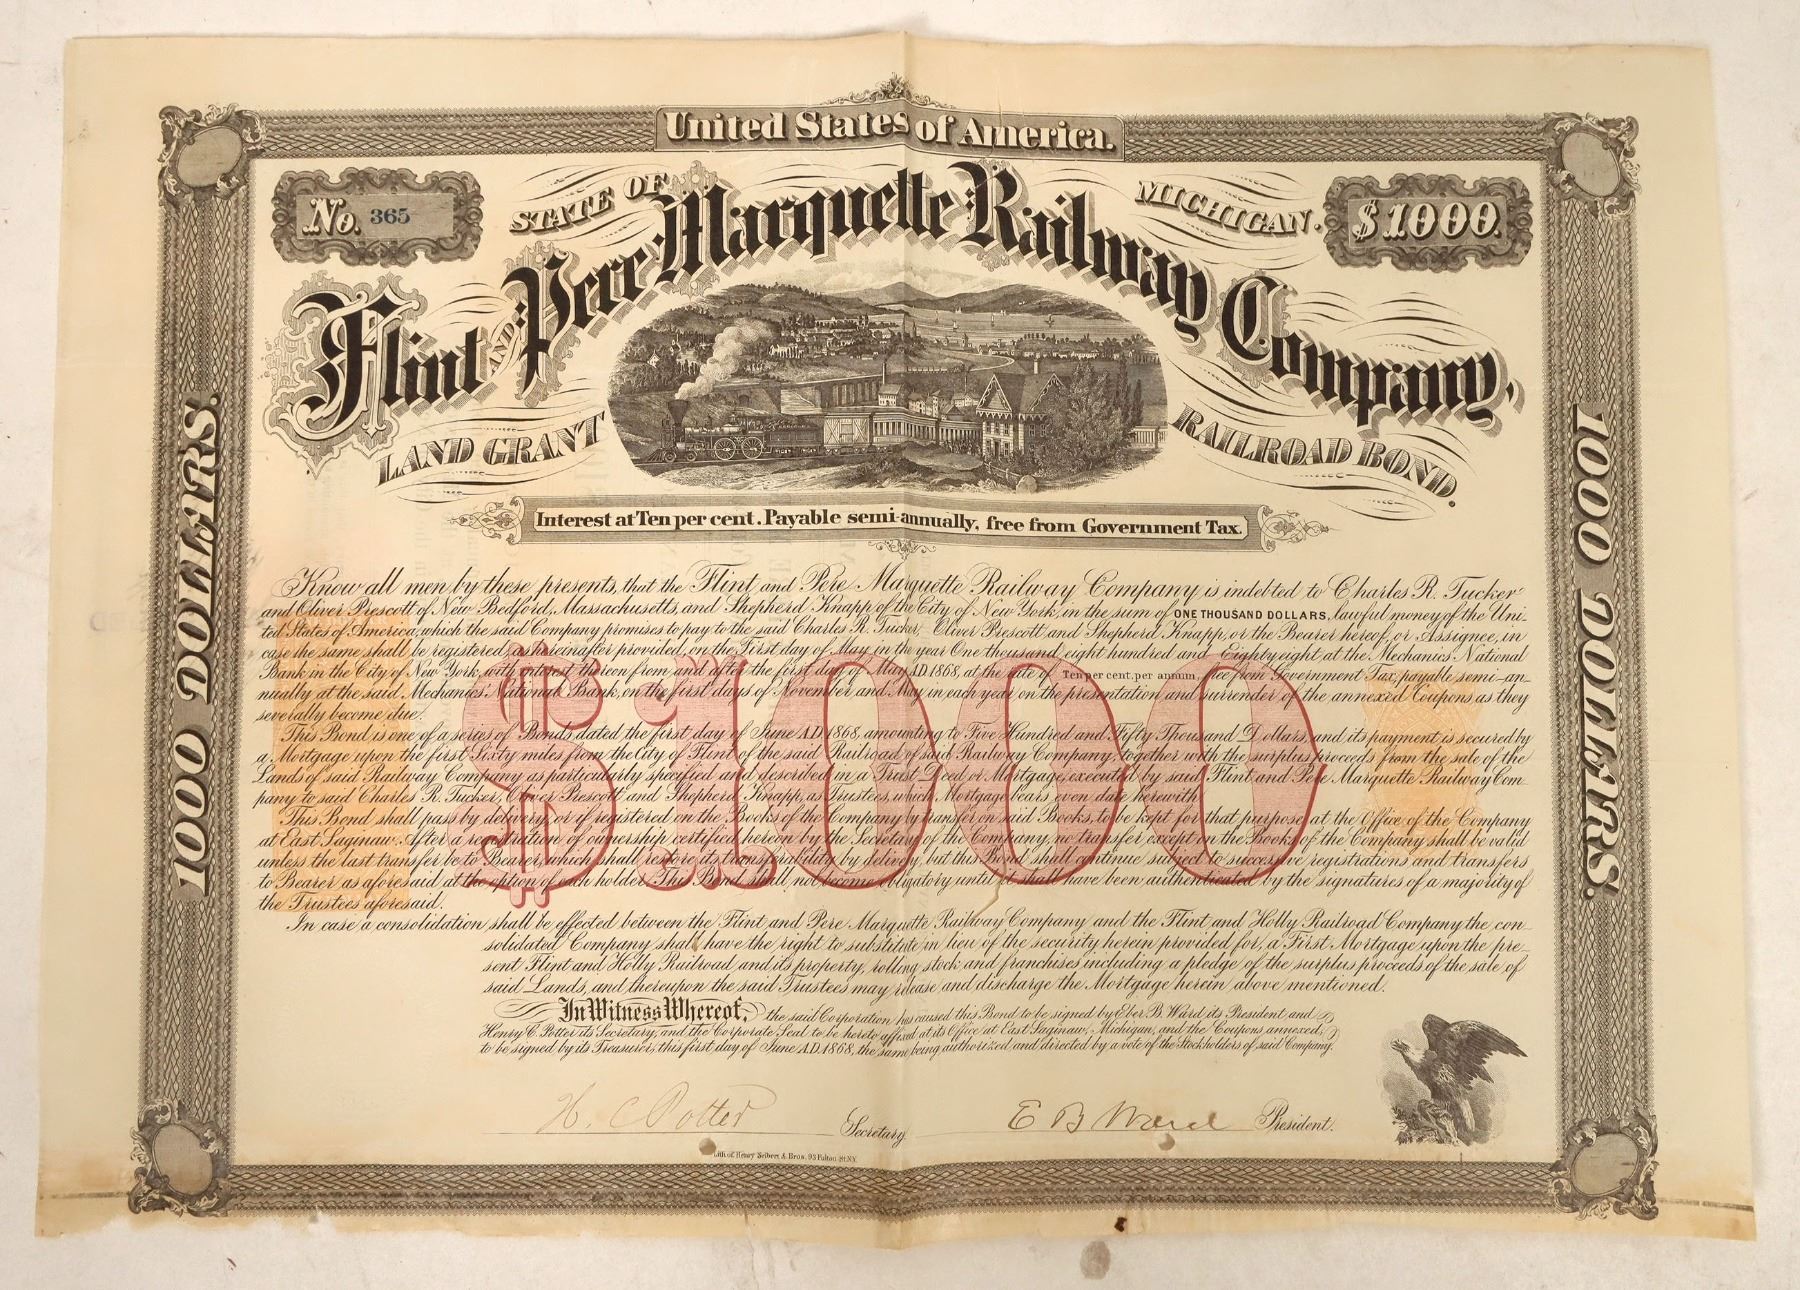 United States of America.
No. 365
STATE OF MICHIGAN.
$1000.
Flint AND Pere Marquette Railway Company,
LAND GRANT RAILROAD BOND.
Interest at Ten per cent. Payable semi-annually, free from Government Tax.
1000 DOLLARS.
1000 DOLLARS.
$1000
Know all men by these presents, that the Flint and Pere Marquette Railway Company is indebted to Charles R. Tucker
and Oliver Prescott of New Bedford, Massachusetts, and Shepherd Knapp of the City of New York, in the sum of ONE THOUSAND DOLLARS, lawful money of the Uni-
ted States of America, which the said Company promises to pay to the said Charles R. Tucker, Oliver Prescott and Shepherd Knapp, or the Bearer hereof, or Assignee, in
case the same shall be registered, as hereinafter provided, on the First day of May in the year One thousand, eight hundred and Eighty eight at the Mechanics' National
Bank in the City of New York, with interest thereon from and after the first day of May AD 1868, at the rate of Ten per cent. per annum, free from Government Tax, payable semi-an-
nually at the said Mechanics' National Bank, on the first days of November and May in each year on the presentation and surrender of the annexed Coupons as they
severally become due.
This Bond is one of a series of Bonds dated the first day of June A.D. 1868, amounting to Five Hundred and Fifty Thousand Dollars and its payment is secured by
a Mortgage upon the first Sixty miles from the City of Flint of the said Railroad of said Railway Company, together with the surplus proceeds from the sale of the
Lands of said Railway Company as particularly specified and described in a Trust Deed or Mortgage, executed by said Flint and Pere Marquette Railway Com-
pany to said Charles R. Tucker, Oliver Prescott and Shepherd Knapp, as Trustees, which Mortgage bears even date herewith.
This Bond shall pass by delivery, or if registered on the Books of the Company by transfer on said Books, to be kept for that purpose at the Office of the Company
at East Saginaw. After a registration of ownership certified hereon by the Secretary of the Company, no transfer except on the Books of the Company shall be valid
unless the last transfer be to Bearer, which shall restore its transferability by delivery, but this Bond shall continue subject to successive registrations and transfers
to Bearer as aforesaid at the option of each holder. This Bond shall not become obligatory until it shall have been authenticated by the signatures of a majority of
the Trustees aforesaid.
In case a consolidation shall be effected between the Flint and Pere Marquette Railway Company and the Flint and Holly Railroad Company the con-
solidated Company shall have the right to substitute in lieu of the security herein provided for, a First Mortgage upon the pre-
sent Flint and Holly Railroad and its property, rolling stock and franchises including a pledge of the surplus proceeds of the sale of
said Lands, and thereupon the said Trustees may release and discharge the Mortgage herein above mentioned.
In Witness Whereof, the said Corporation has caused this Bond to be signed by Eber B. Ward its President and
Henry C. Potter its Secretary, and the Corporate Seal to be hereto affixed at its Office at East Saginaw, Michigan, and the Coupons annexed,
to be signed by its Treasurer, this first day of June A.D. 1868, the same being authorized and directed by a vote of the Stockholders of said Company.
H. C Potter Secretary
E B Ward President.
Lith. of Henry Seibert & Bros. 93 Fulton St. N.Y.